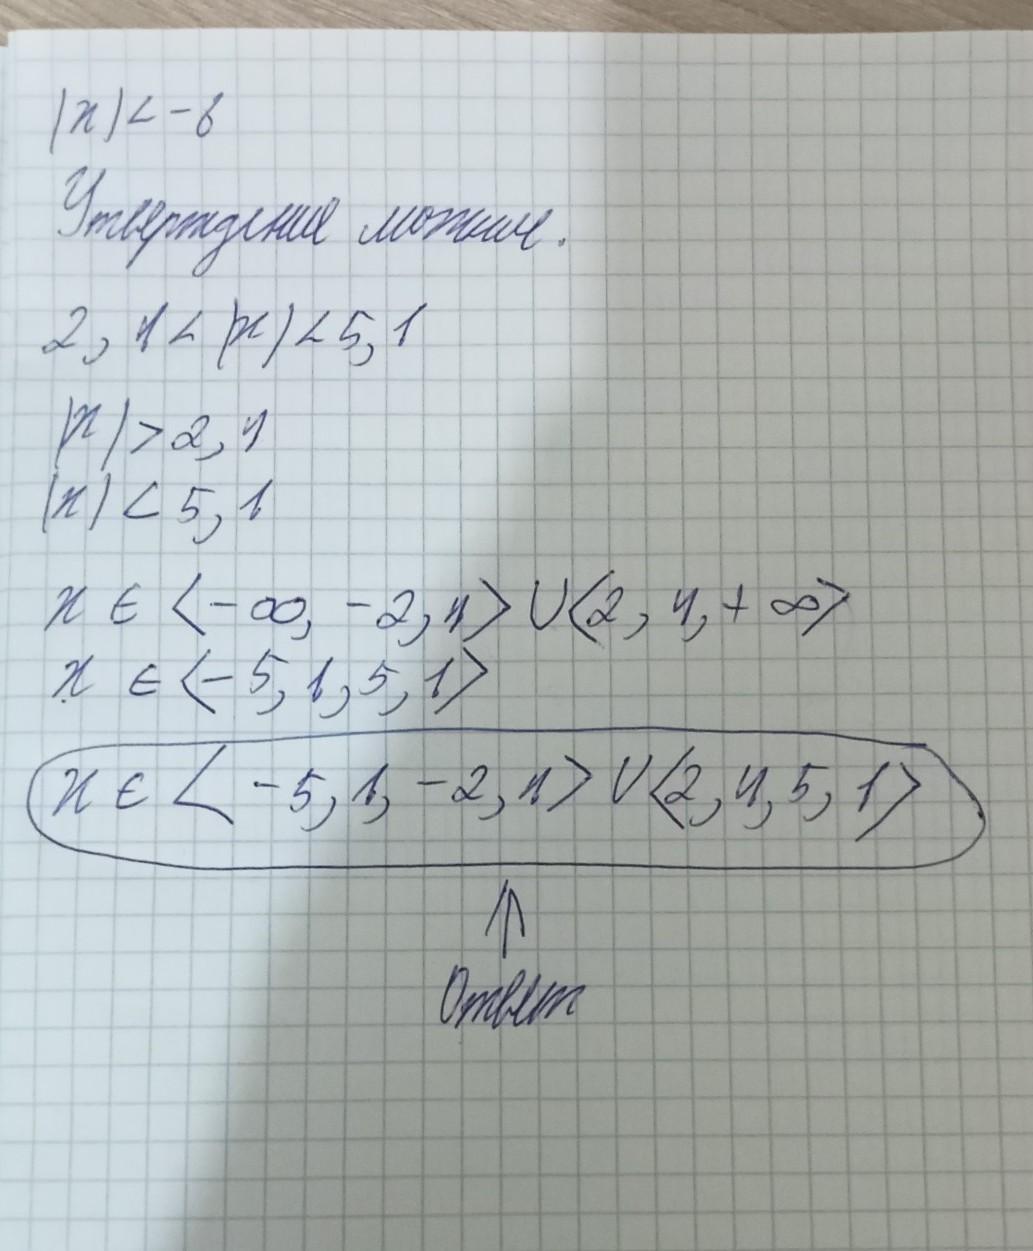 |x|<-6
Утверждение ложное.
2,4<|x|<5,1
|x|>2,4
|x|<5,1
x ∈ <-∞, -2,4> U <2,4,+∞>
x ∈ <-5,1,5,1>
x ∈ <-5,1,-2,4> U <2,4,5,1>
Ответ